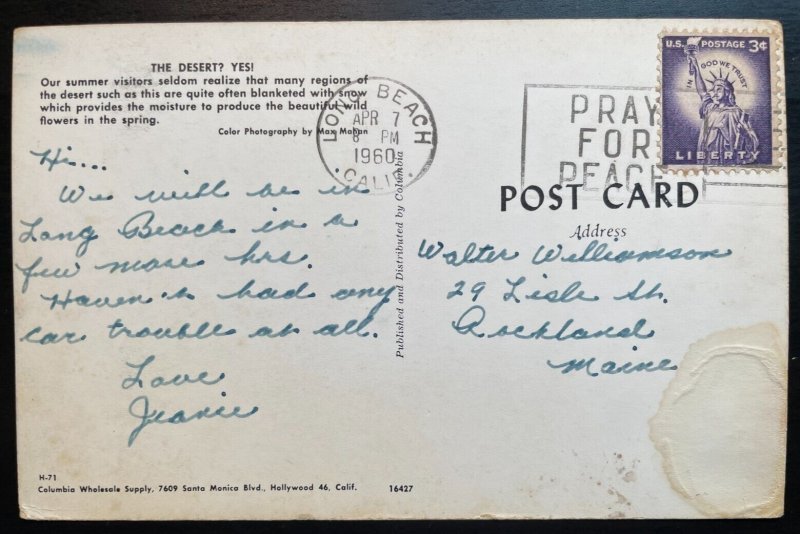 THE DESERT? YES!
Our summer visitors seldom realize that many regions of
the desert such as this are quite often blanketed with snow
which provides the moisture to produce the beautiful wild
flowers in the spring.
Color Photography by Max Mahan
Hi...
We will be in
Long Beach in a
few more hrs.
Haven't had any
car trouble at all.
Love
Jeanie
H-71
Columbia Wholesale Supply, 7609 Santa Monica Blvd., Hollywood 46, Calif.
16427
Published and Distributed by Columbia
LONG BEACH
APR 7
8 PM
1960
CALIF.
PRAY
FOR
PEACE
U.S. POSTAGE 3¢
IN GOD WE TRUST
LIBERTY
POST CARD
Address
Walter Williamson
29 Lisle St.
Rockland
Maine